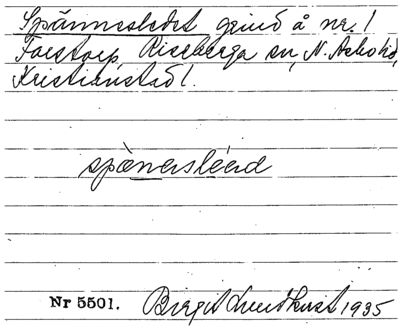 Spännesledet grind å nr. 1
Färstorp, Riseberga sn, N. Åsbo hd,
Kristianstad l.
späneṛsléəd
Nr 5501. Birgit Lundkvist 1935